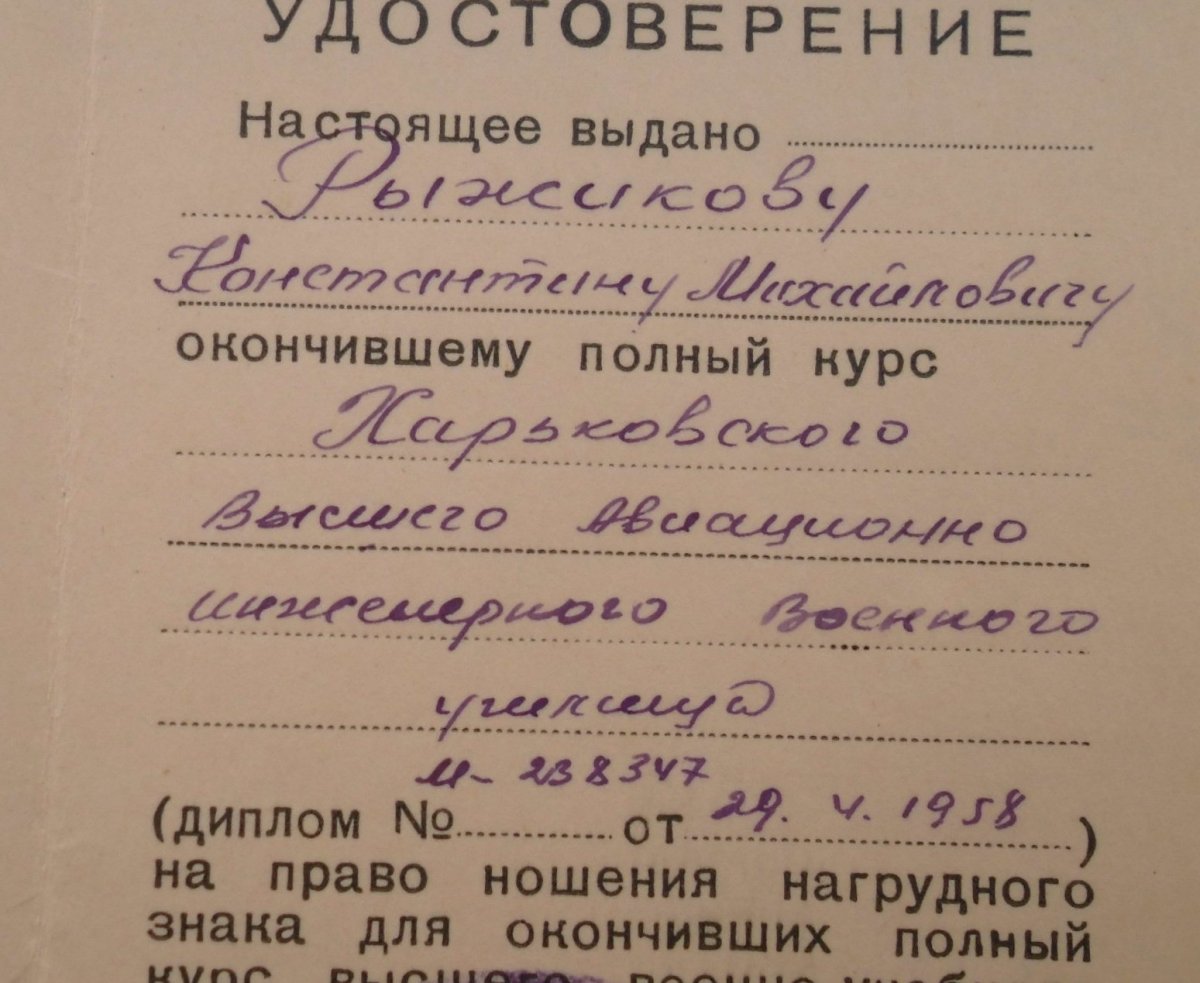 УДОСТОВЕРЕНИЕ
Настоящее выдано
Рыжикову
Константину Михайловичу
окончившему полный курс
Харьковского
Высшего Авиационно
инженерного Военного
училища
М- 238347
(диплом № от 29. 4. 1958 )
на право ношения нагрудного
знака для окончивших полный
курс высшего военно-учеб